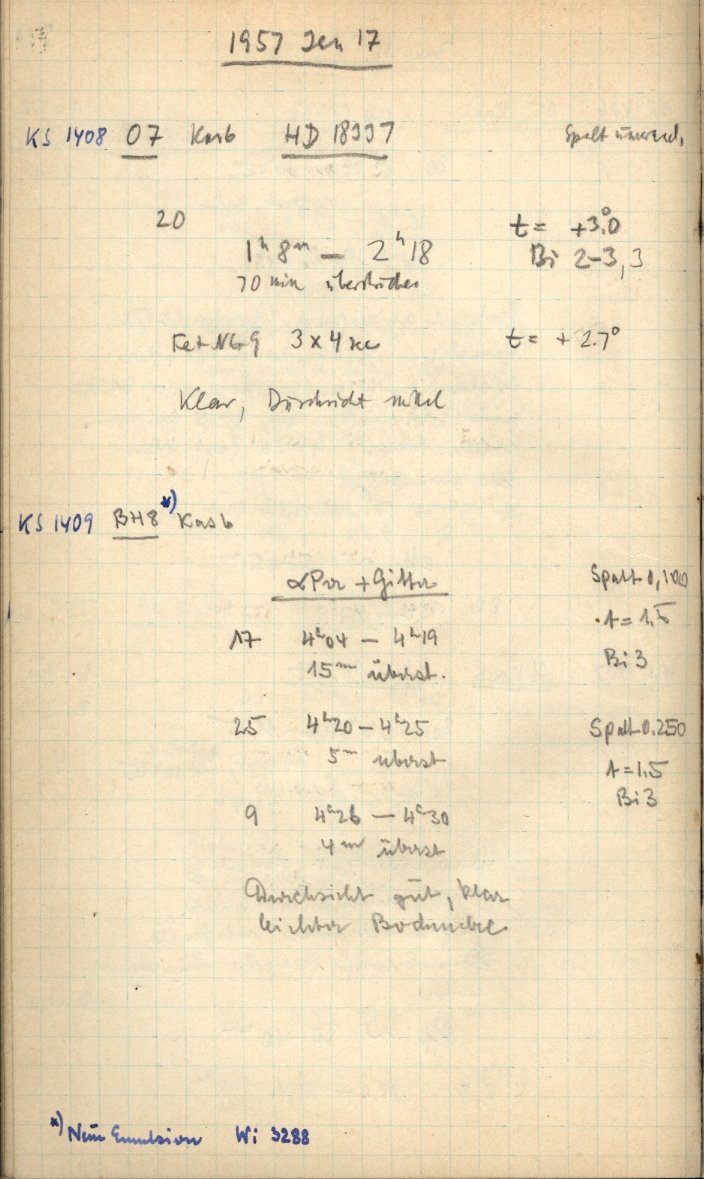 1957 Jan 17
KS 1408 O7 Kasb HD 18337 Spalt unverd.
20 t = +3.°0
1ʰ 8ᵐ — 2ʰ 18 Bi 2-3, 3
70 min überstrichen
Fe + Nb 9 3 x 4 sec t = + 2.7°
Klar, Durchsicht mittel
KS 1409 BH8 *) Kasb
αPer + Gitter Spalt 0,100
17 4ʰ04 — 4ʰ19 t = 1.5
15ᵐ überst. Bi 3
25 4ʰ20 — 4ʰ25 Spalt 0.250
5ᵐ überst t = 1.5
9 4ʰ26 — 4ʰ30 Bi 3
4ᵐ überst
Durchsicht gut, klar
leichter Bodennebel
*) Neue Emulsion Wi 3288